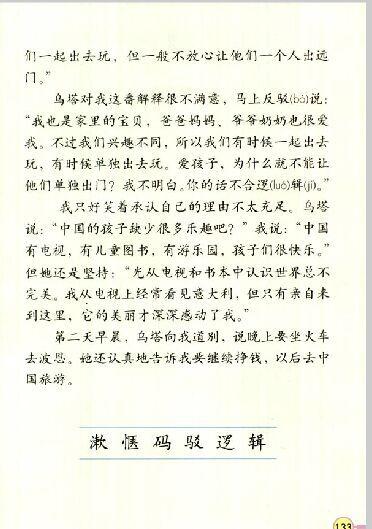 们一起出去玩，但一般不放心让他们一个人出远
门。”
乌塔对我这番解释很不满意，马上反驳(bó)说：
“我也是家里的宝贝，爸爸妈妈、爷爷奶奶也很爱
我。不过我们兴趣不同，所以我们有时候一起出去
玩，有时候单独出去玩。爱孩子，为什么就不能让
他们单独出门？我不明白。你的话不合逻(luó)辑(jí)。”
我只好笑着承认自己的理由不太充足。乌塔
说：“中国的孩子缺少很多乐趣吧？”我说：“中国
有电视，有儿童图书，有游乐园，孩子们很快乐。”
但她还是坚持：“光从电视和书本中认识世界总不
完美。我从电视上经常看见意大利，但只有亲自来
到这里，它的美丽才深深感动了我。”
第二天早晨，乌塔向我道别，说晚上要坐火车
去波恩。她还认真地告诉我要继续挣钱，以后去中
国旅游。
漱 惬 码 驳 逻 辑
133